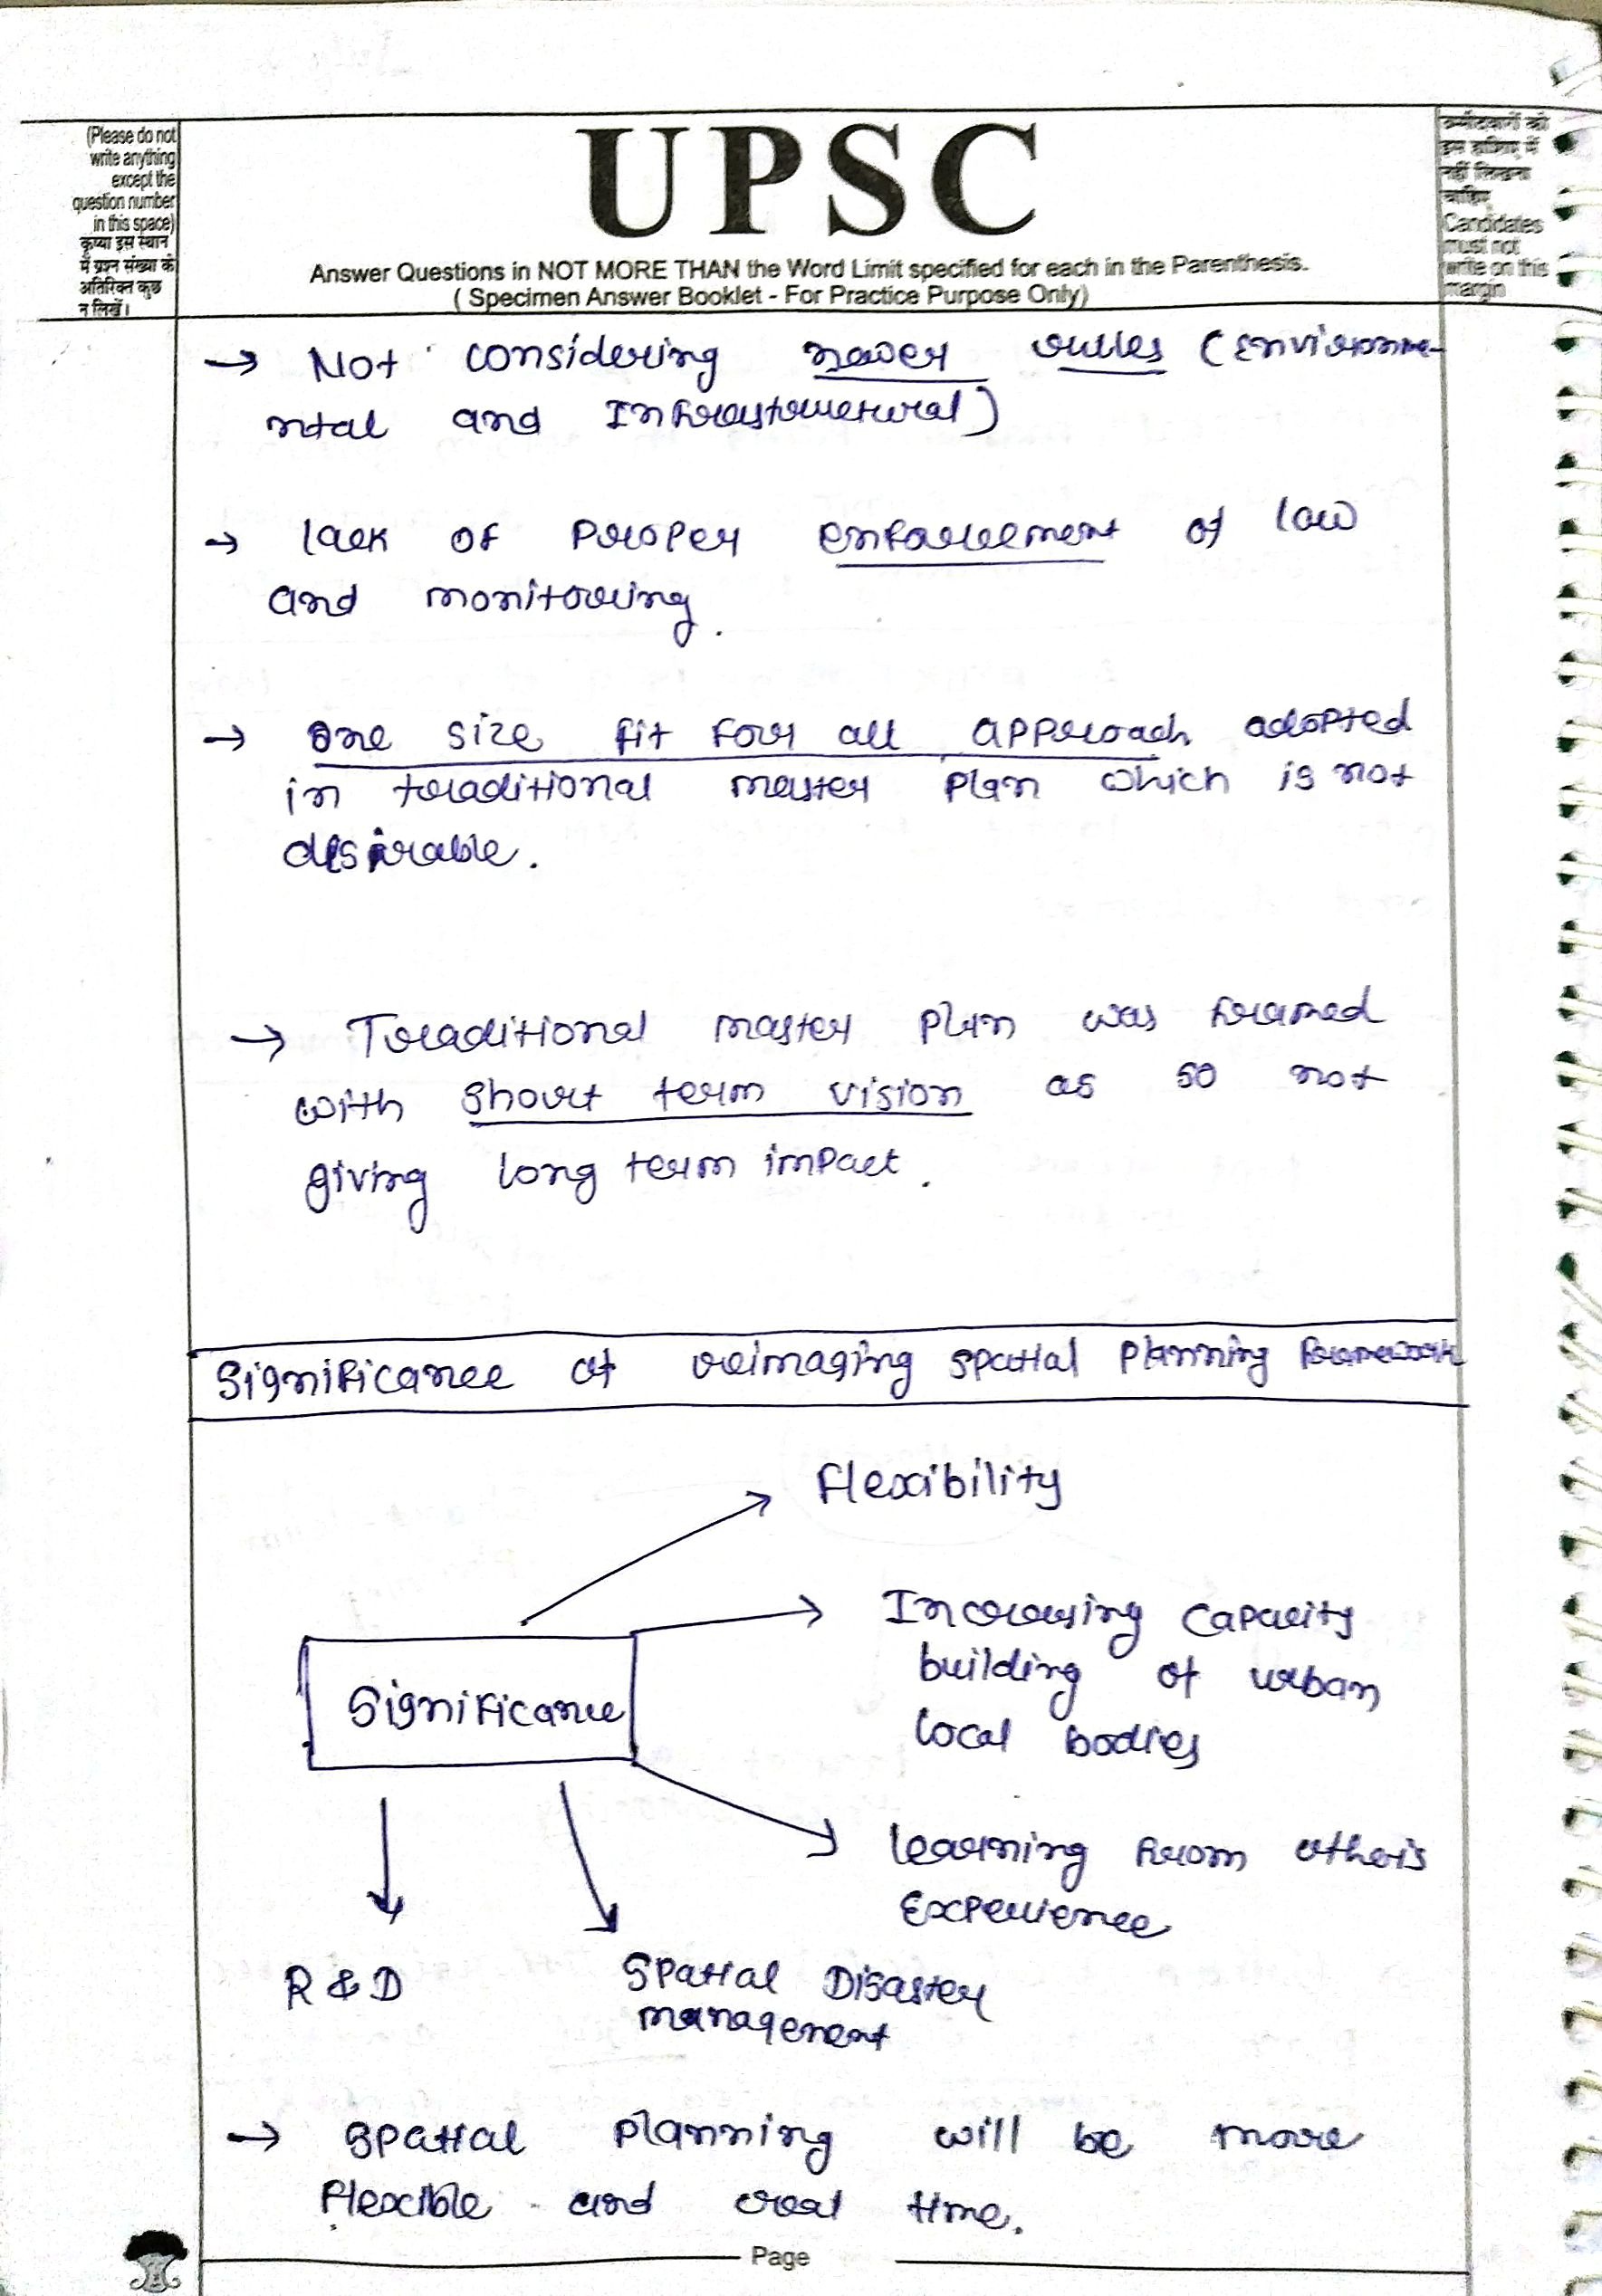 (Please do not
write anything
except the
question number
in this space)
कृप्या इस स्थान
में प्रश्न संख्या के
अतिरिक्त कुछ
न लिखें।
UPSC
Answer Questions in NOT MORE THAN the Word Limit specified for each in the Parenthesis.
( Specimen Answer Booklet - For Practice Purpose Only)
उम्मीदवारों को
इस हाशिए में
नहीं लिखना
चाहिए
Candidates
must not
write on this
margin
→ Not considering newer rules (Environme-
ntal and Infrastructural)
→ lack of proper enforcement of law
and monitoring.
→ One size fit for all approach adopted
in traditional master plan which is not
desirable.
→ Traditional master plan was framed
with short term vision as so not
giving long term impact.
Significance of reimaging spatial planning framework
Flexibility
Increasing capacity
building of urban
local bodies
Significance
learning from other's
Experience
R & D
Spatial Disaster
management
→ spatial planning will be more
flexible and real time.
Page